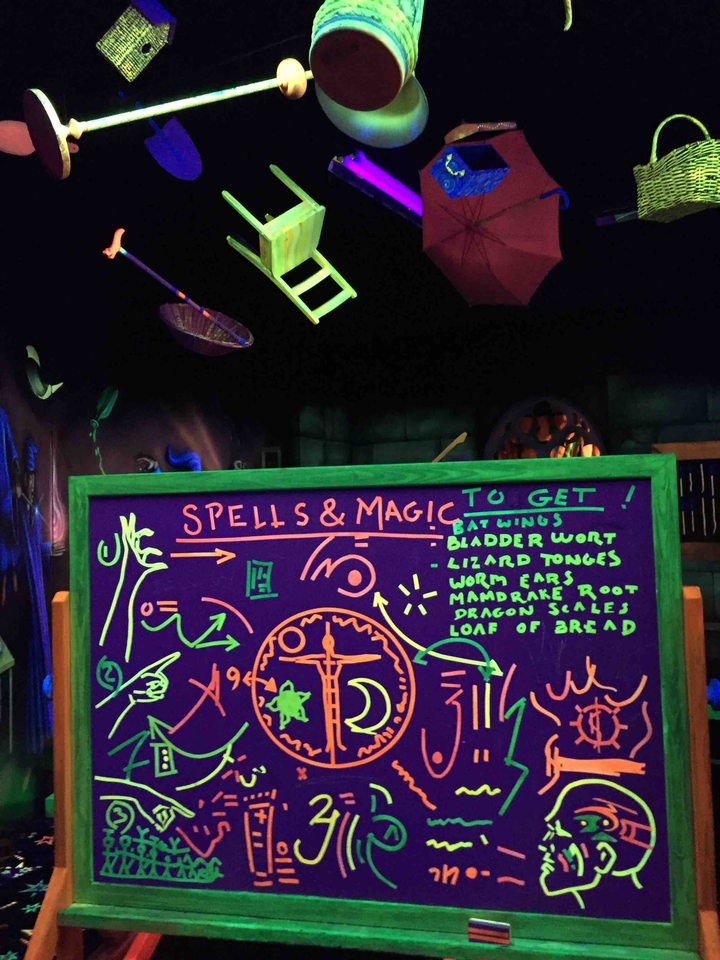 SPELLS & MAGIC
TO GET !
BAT WINGS
- BLADDER WORT
- LIZARD TONGES
WORM EARS
MAMDRAKE ROOT
DRAGON SCALES
LOAF OF BREAD
1
2
3